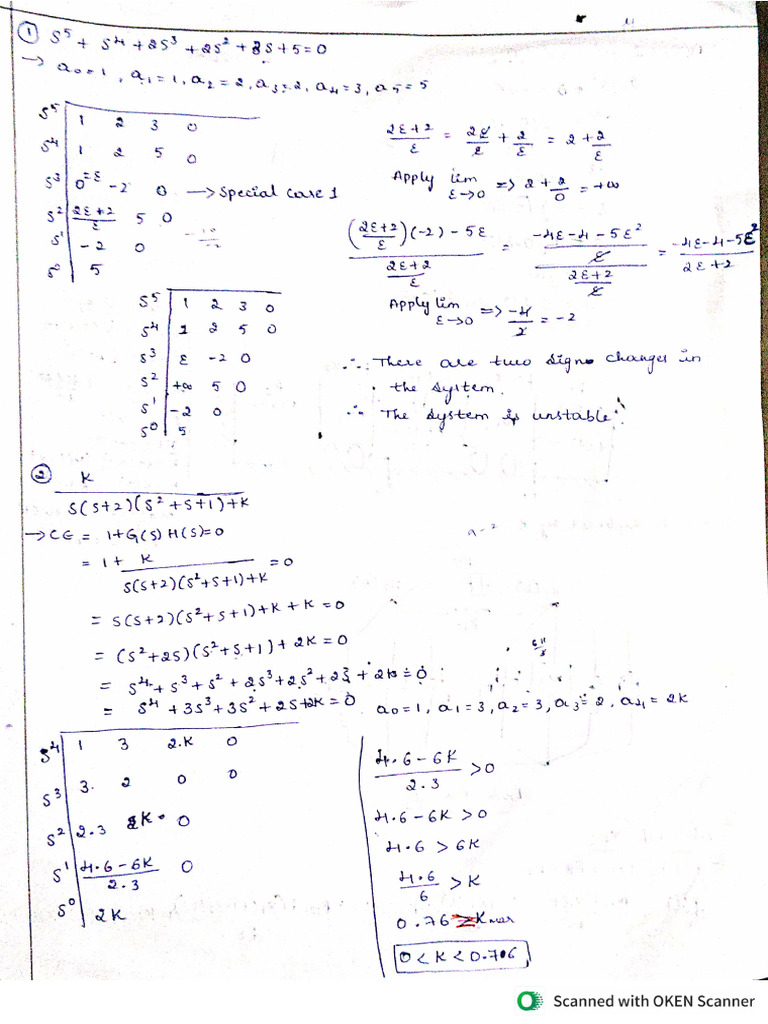 ① S⁵ + S⁴ + 2S³ + 2S² + 3S + 5 = 0
→ a₀=1, a₁=1, a₂=2, a₃=2, a₄=3, a₅=5
S⁵ | 1 2 3 0
S⁴ | 1 2 5 0
S³ | 0=ε -2 0 → Special case 1
S² | (2ε+2)/ε 5 0
S¹ | -2 0
S⁰ | 5
(2ε+2)/ε = 2ε/ε + 2/ε = 2 + 2/ε
Apply lim ε→0 => 2 + 2/0 = +∞
(((2ε+2)/ε)(-2) - 5ε)/((2ε+2)/ε) = ((-4ε-4-5ε²)/ε)/((2ε+2)/ε) = (-4ε-4-5ε²)/(2ε+2)
Apply lim ε→0 => -4/2 = -2
S⁵ | 1 2 3 0
S⁴ | 1 2 5 0
S³ | ε -2 0
S² | +∞ 5 0
S¹ | -2 0
S⁰ | 5
∴ There are two signs changes in
the system.
∴ The system is unstable.
② K/(S(S+2)(S²+S+1)+K)
→ CE = 1+G(S)H(S)=0
= 1 + K/(S(S+2)(S²+S+1)+K) = 0
= S(S+2)(S²+S+1)+K+K=0
= (S²+2S)(S²+S+1)+2K=0
= S⁴+S³+S²+2S³+2S²+2S+2K=0
= S⁴+3S³+3S²+2S+2K=0 a₀=1, a₁=3, a₂=3, a₃=2, a₄=2K
S⁴ | 1 3 2K 0
S³ | 3 2 0 0
S² | 2.3 2K 0
S¹ | (4.6-6K)/2.3 0
S⁰ | 2K
(4.6-6K)/2.3 > 0
4.6-6K > 0
4.6 > 6K
4.6/6 > K
0.76 > Kmar
0 < K < 0.706
Scanned with OKEN Scanner